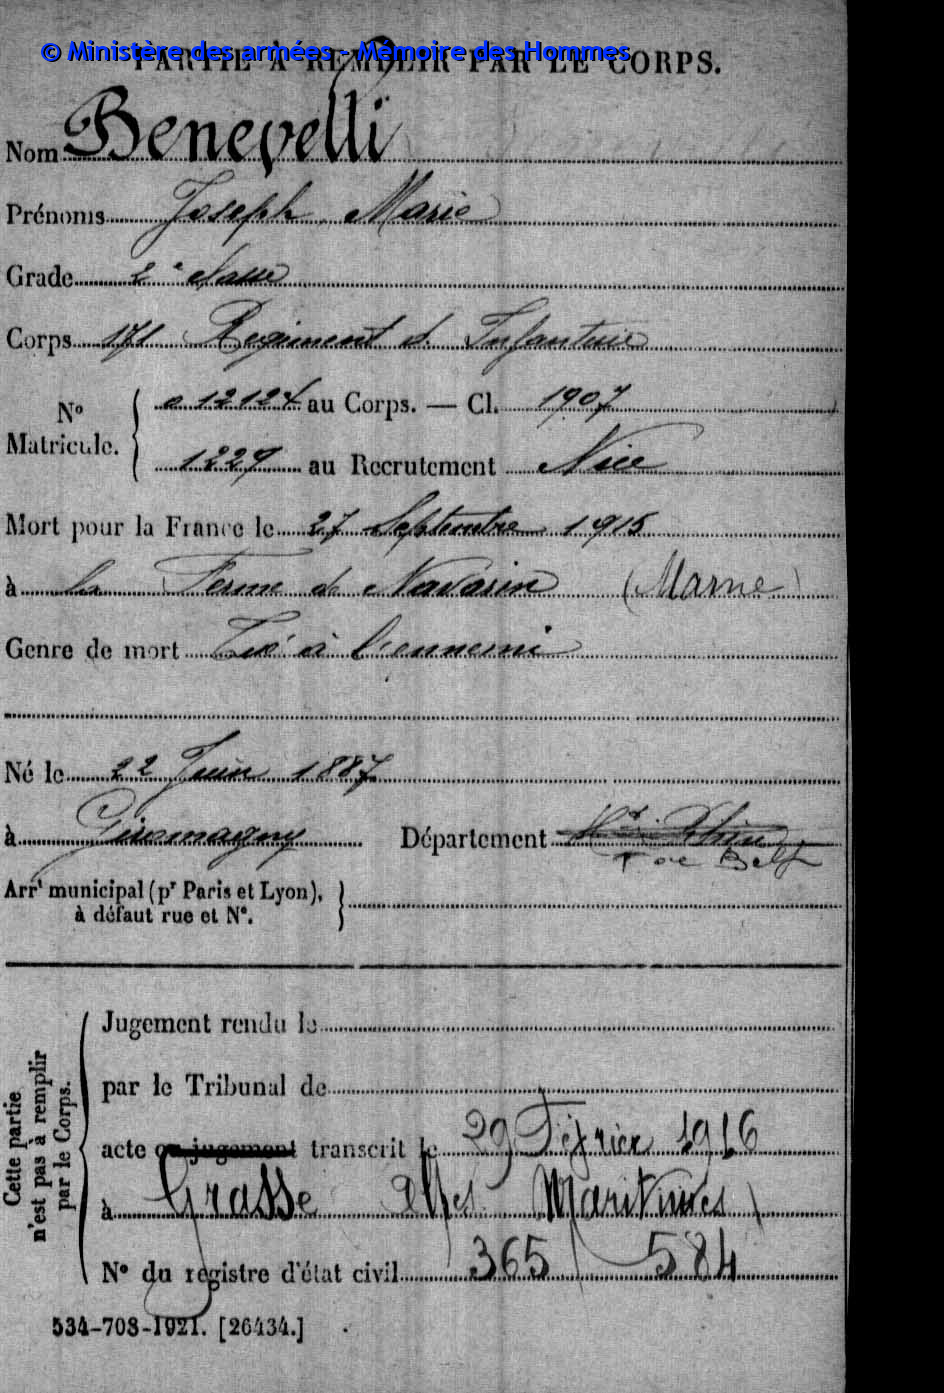 © Ministère des armées - Mémoire des Hommes
PARTIE À REMPLIR PAR LE CORPS.
Nom Benevelli
Prénoms Joseph Marie
Grade 2e classe
Corps 171 Regiment d. Infanterie
No Matricule. { o 12124 au Corps. — Cl. 1907
1229 au Recrutement Nice
Mort pour la France le 27 Septembre 1915
à la Ferme de Navarin (Marne)
Genre de mort Tué à l'ennemi
Né le 22 Juin 1887
à Giromagny Département Ht Rhin
T de Belf
Arrt municipal (pr Paris et Lyon),
à défaut rue et No.
Cette partie
n'est pas à remplir
par le Corps.
Jugement rendu le
par le Tribunal de
acte ou jugement transcrit le 29 Février 1916
à Grasse (Alpes Maritimes)
No du registre d'état civil 365 / 584
534-708-1921. [26434.]